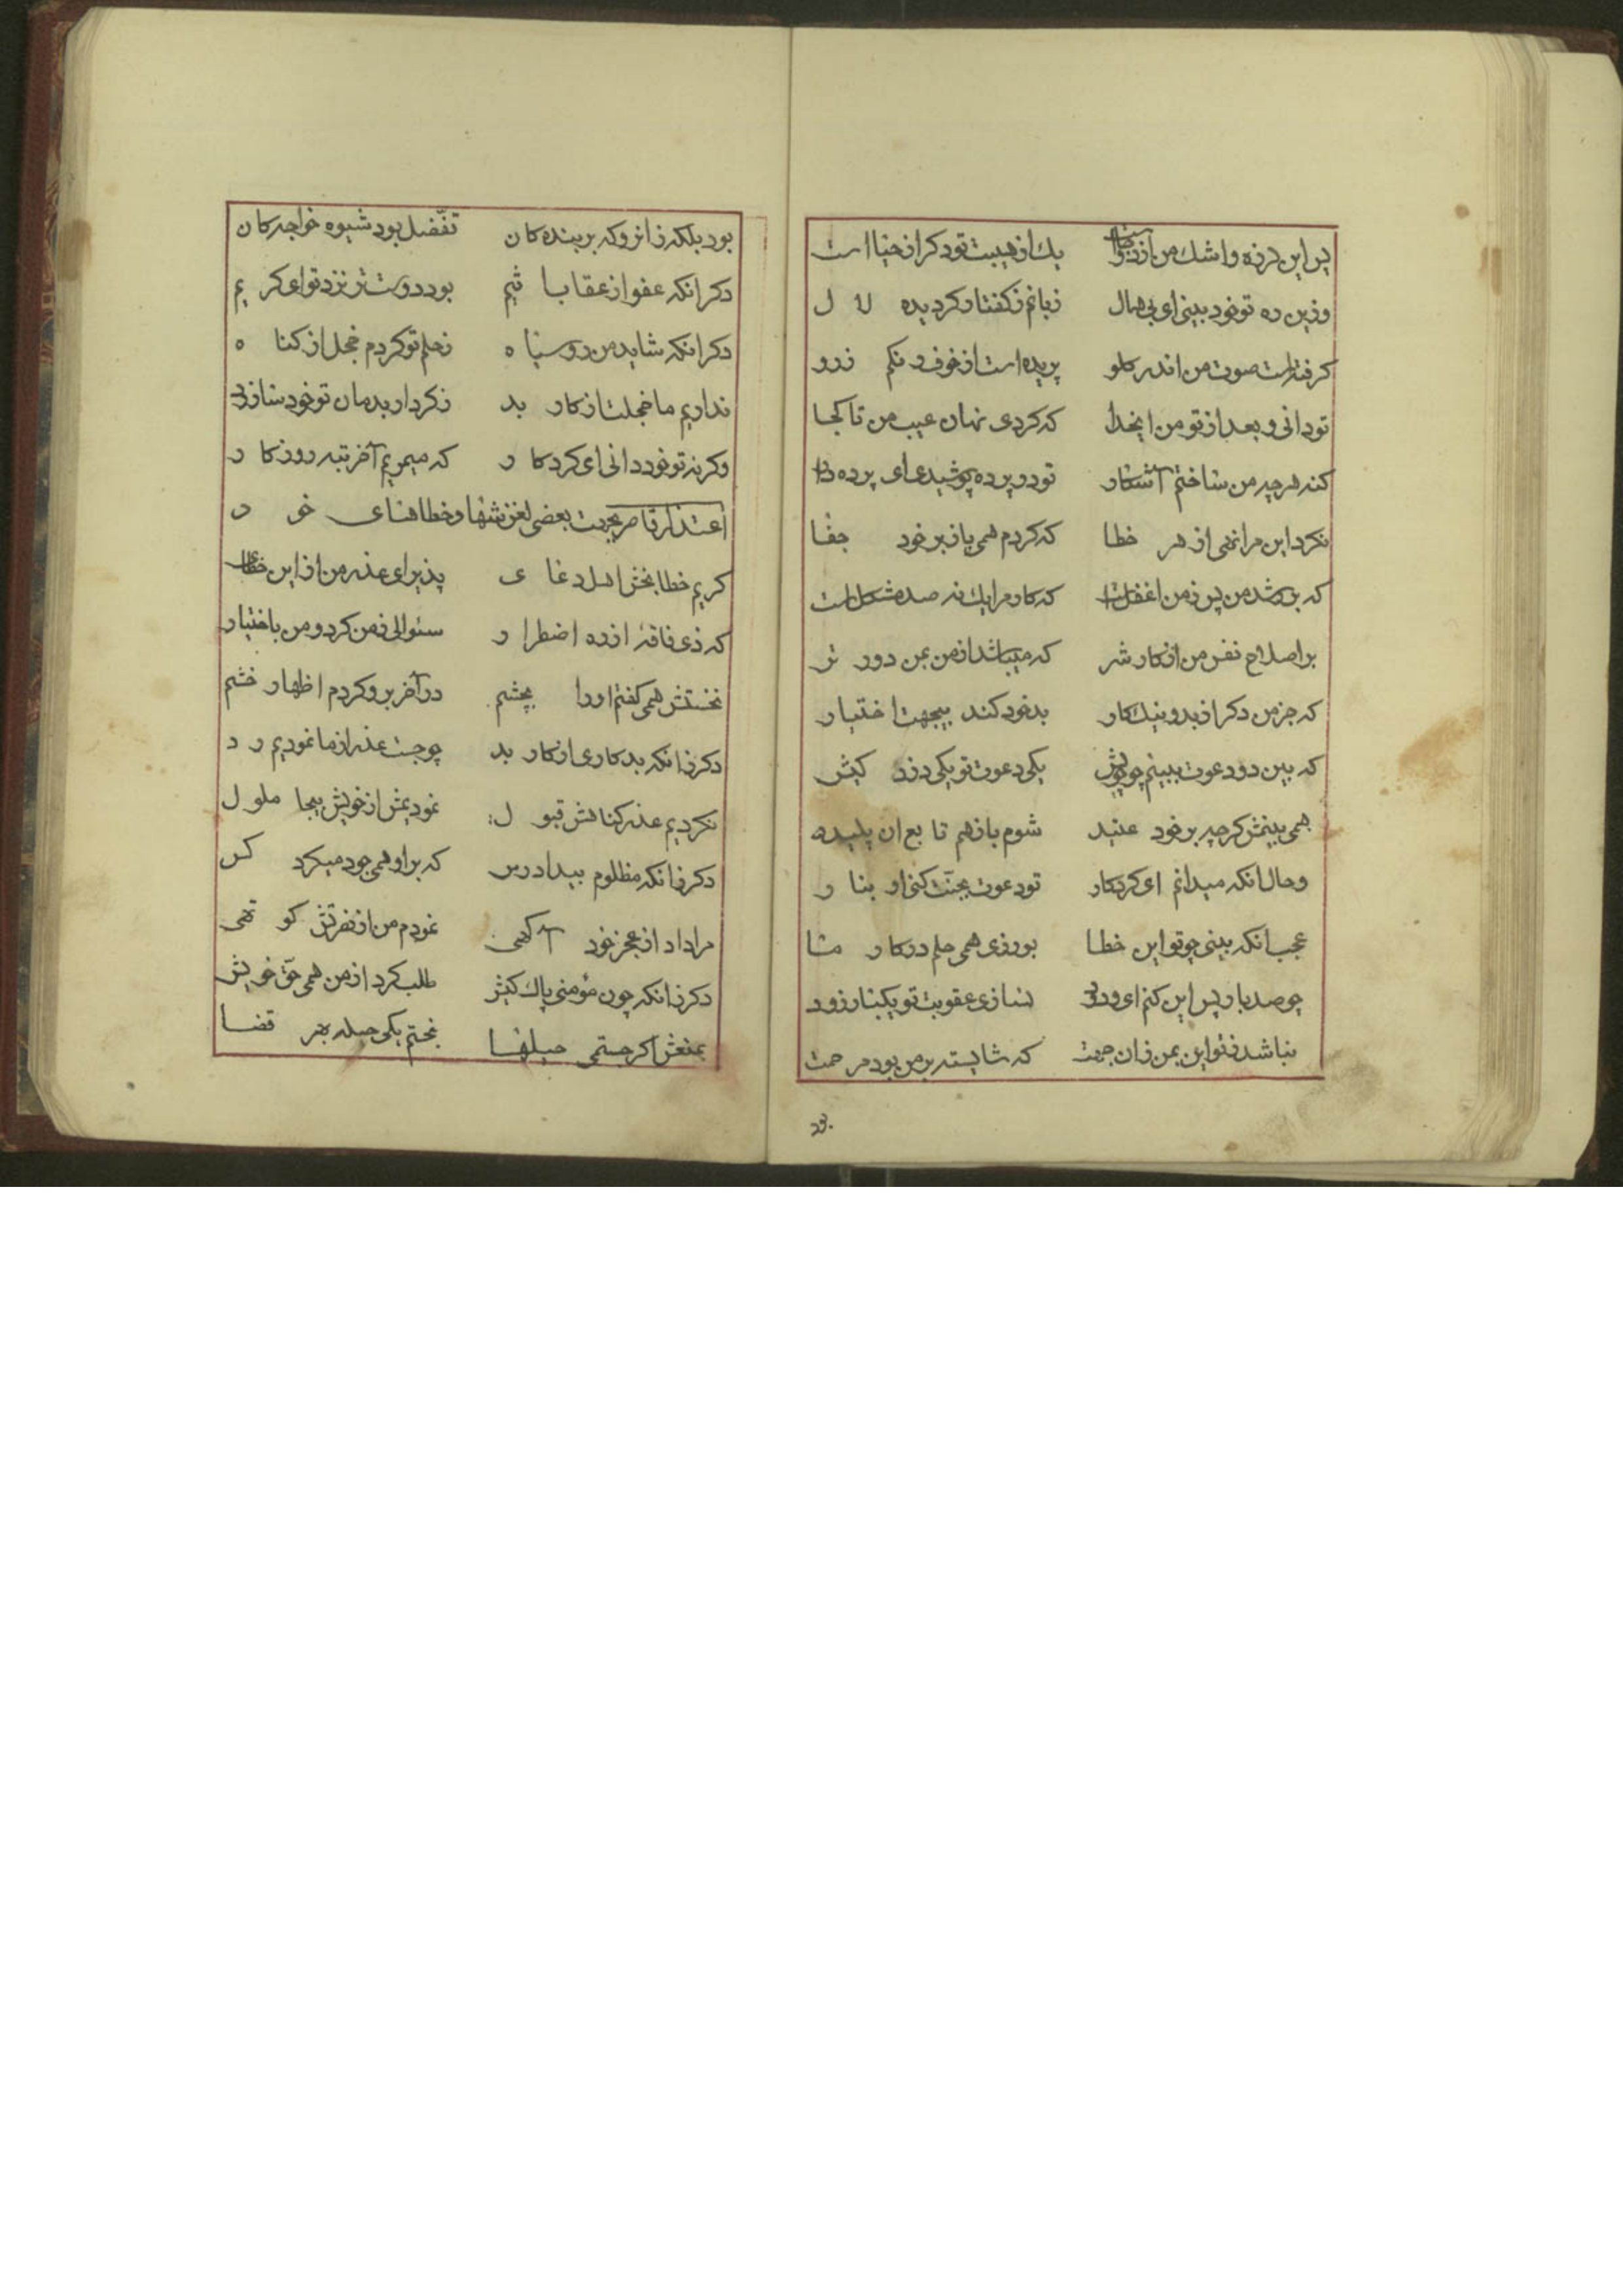 پس این لرزه و اشک من از دو یک از هیبت تو دکر از حیا است
وزین ره تو خود بینی ای بی همال زبانم ز کفتار کردیده لا ل
کرفتست صوت من اندر کلو پریده است از خوف رنکم ز رو
تو دانی و بعد از تو من ایخدا که کردی نهان عیب من تا کجا
کنه هر چه من ساختم آشکار تو در پرده پوشیدی ای پرده دار
نکرد این مرا نهی از هر خطا که کردم همی باز بر خود جفا
که بر رشد من پس ز من اغفل است که کار مرا یک نه صد مشکل است
بر اصلاح نفس من از کار شر که میباشد از من بمن دور تر
که جز من دکر از بد و نیک کار بد خود کند بیجهت اختیار
که بین دو دعوت ببینم چو پیش یکی دعوت تو یکی دزد کیش
همی بینمش کر چه بر خود عنید شوم باز هم تا بع ان پلید
و حال انکه میدانم ای کردکار تو دعوت بجنّت کنی او بنا ر
عجب انکه بینی چو تو این خطا بورزی همی حلم در کار ما
چو صد بار پس این کنم ای ودود نسازی عقوبت تو یکبار زود
نباشد ز تو این بمن زان جهت که شایسته بر من بود مرحمت
بود بلکه زانرو که بر بنده کان تفّضل بود شیوه خواجه کان
دکر انکه عفو از عقاب اثیم بود دوست تر نزد تو ای کر یم
دکر انکه شاید من روسیا ه ز حلم تو کردم خجل از کنا ه
نداریم ما خجلت از کار بد ز کردار بدمان تو خود ساز رد
وکرنه تو خود دانی ای کردکا ر که میمیریم آخر تبه روزکا ر
اعتذار قاصر بجهت بعضی لغزشها و خطاهای خو د
کریم خطا بخش اهل دغا ی پذیر ای عذر من از این خطای
که ذی فاقهٔ از ره اضطرا ر سئوالی ز من کرد و من باختیار
نخستش همی کفتم او را بچشم در آخر برو کردم اظهار خشم
دکر زانکه بدکاری از کار بد چو جست عذر از ما نمودیم ر د
نکردیم عذر کناهش قبو ل نمودیمش از خویش بیجا ملو ل
دکر زانکه مظلوم بیدادرس که بر او همی جور میکرد کس
مرا داد از عجز خود آکهی نمودم من از نصرتش کو تهی
دکر زانکه چون مؤمنی پاک کیش طلب کرد از من همی حقّ خویش
بمنعش اکر جستمی حیلها نجستم یکی حیله بهر قضا